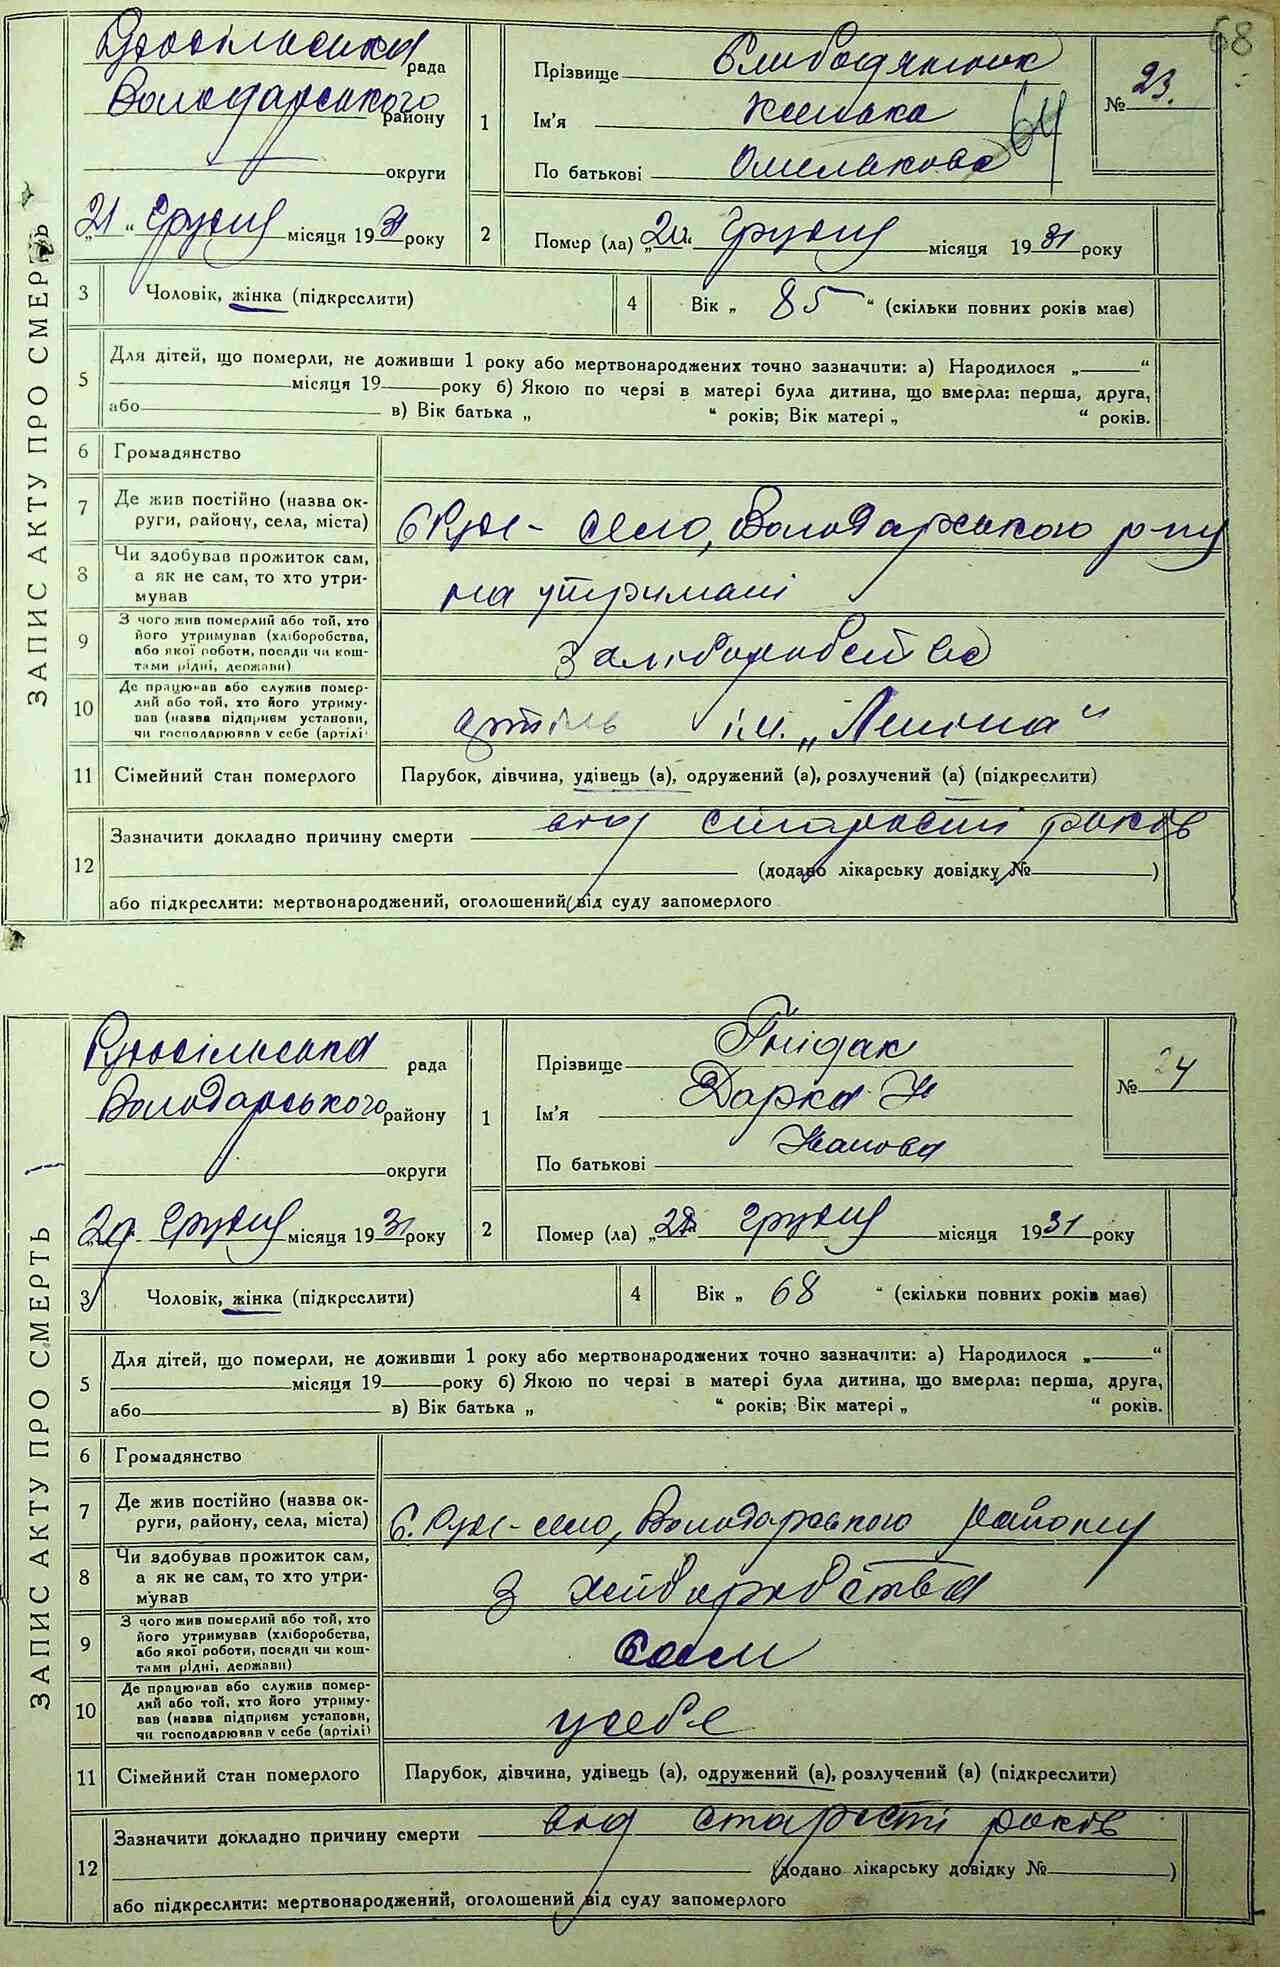 68
ЗАПИС АКТУ ПРО СМЕРТЬ
рада
Володарського району
округи
„21“ грудня місяця 1931 року
1
Прізвище Слободянюк
Ім'я
По батькові Омелькова
64
№ 23.
2
Помер (ла) грудня місяця 1931 року
3
Чоловік, жінка (підкреслити)
4
Вік „ 85 “ (скільки повних років має)
5
Для дітей, що померли, не доживши 1 року або мертвонароджених точно зазначити: а) Народилося „ “
місяця 19 року б) Якою по черзі в матері була дитина, що вмерла: перша, друга,
або в) Вік батька „ “ років; Вік матері „ “ років.
6
Громадянство
7
Де жив постійно (назва ок-
руги, району, села, міста)
с Руж-село, Володарського р-ну
8
Чи здобував прожиток сам,
а як не сам, то хто утри-
мував
на утримані
9
З чого жив померлий або той, хто
його утримував (хліборобства,
або якої роботи, посади чи кош-
тами рідні, держави)
10
Де працював або служив помер-
лий або той, хто його утриму-
вав (назва підприєм установи,
чи господарював у себе (артілі)
артіль ім. „Леніна“
11
Сімейний стан померлого
Парубок, дівчина, удівець (а), одружений (а), розлучений (а) (підкреслити)
12
Зазначити докладно причину смерти від старости років
(додано лікарську довідку № )
або підкреслити: мертвонароджений, оголошений від суду запомерлого
ЗАПИС АКТУ ПРО СМЕРТЬ
рада
Володарського району
округи
29 грудня місяця 1931 року
1
Прізвище Гнідак
Ім'я Дарка
По батькові Іванова
№ 24
2
Помер (ла) грудня місяця 1931 року
3
Чоловік, жінка (підкреслити)
4
Вік „ 68 “ (скільки повних років має)
5
Для дітей, що померли, не доживши 1 року або мертвонароджених точно зазначити: а) Народилося „ “
місяця 19 року б) Якою по черзі в матері була дитина, що вмерла: перша, друга,
або в) Вік батька „ “ років; Вік матері „ “ років.
6
Громадянство
7
Де жив постійно (назва ок-
руги, району, села, міста)
с. Руж-село, Володарського району
8
Чи здобував прожиток сам,
а як не сам, то хто утри-
мував
з хліборобства
9
З чого жив померлий або той, хто
його утримував (хліборобства,
або якої роботи, посади чи кош-
тами рідні, держави)
сам
10
Де працював або служив помер-
лий або той, хто його утриму-
вав (назва підприєм установи,
чи господарював у себе (артілі)
у себе
11
Сімейний стан померлого
Парубок, дівчина, удівець (а), одружений (а), розлучений (а) (підкреслити)
12
Зазначити докладно причину смерти від старості років
(додано лікарську довідку № )
або підкреслити: мертвонароджений, оголошений від суду запомерлого